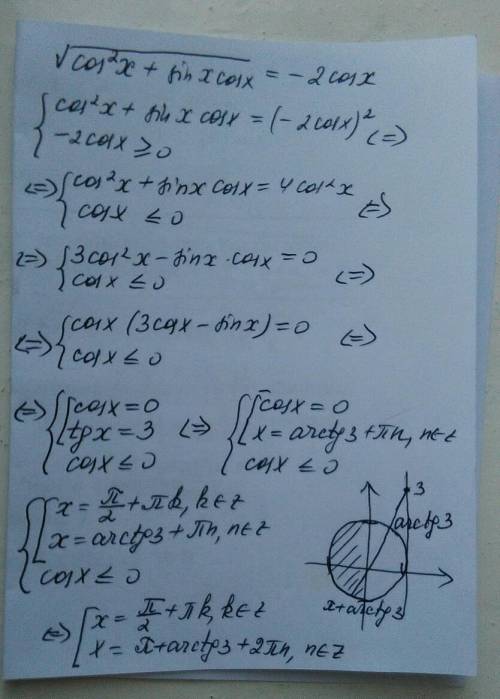 √(cos²x + sin x cosx) = -2cosx
{ cos²x + sin x cosx = (-2cosx)²
{ -2cosx ≥ 0 <=>
<=> { cos²x + sinx cosx = 4cos²x
{ cosx ≤ 0 <=>
<=> { 3cos²x - sinx · cosx = 0
{ cosx ≤ 0 <=>
<=> { cosx (3cosx - sinx) = 0 <=>
{ cosx ≤ 0
<=> { [ cosx = 0 <=> { [ cosx = 0
[ tgx = 3 [ x = arctg3 + πn, n∈z
cosx ≤ 0 cosx ≤ 0
{ [ x = π/2 + πk, k∈z
[ x = arctg3 + πn, n∈z
cosx ≤ 0
3
arctg3
π+arctg3
<=> [ x = π/2 + πk, k∈z
[ x = π + arctg3 + 2πn, n∈z